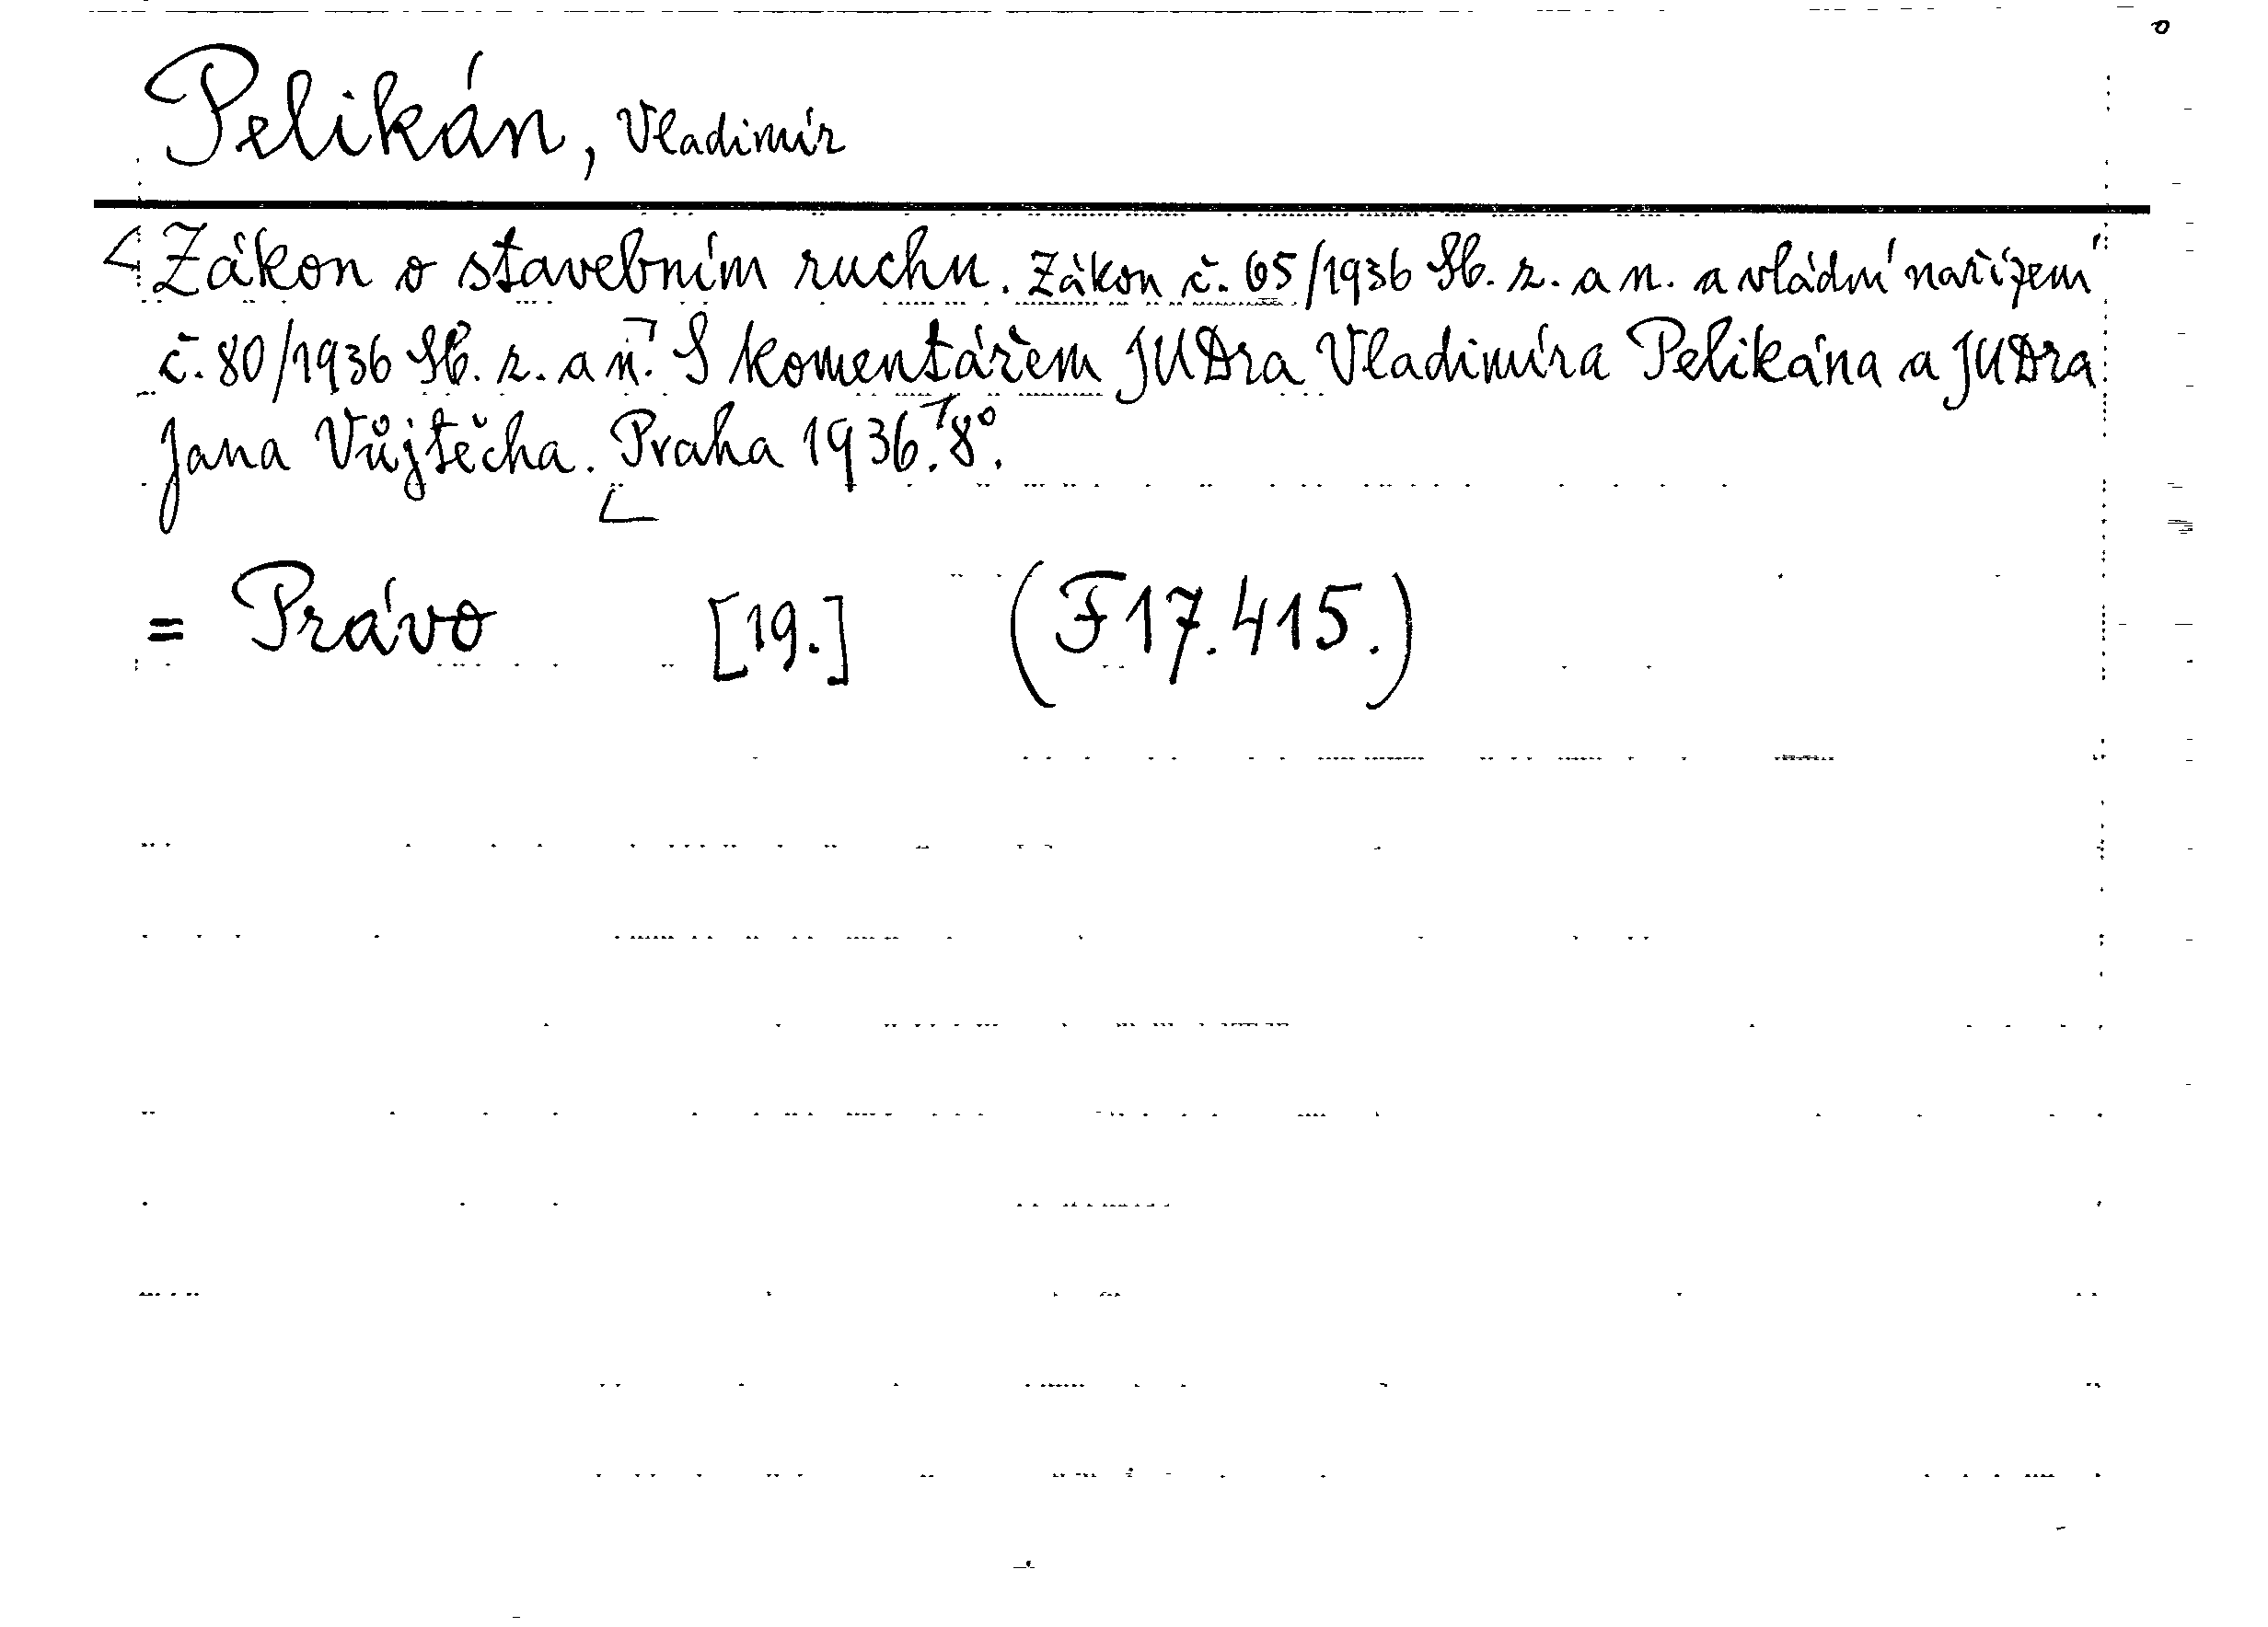 Pelikán, Vladimír
Zákon o stavebním ruchu. Zákon č. 65/1936 Sb. z. a n. a vládní nařízení
č. 80/1936 Sb. z. a n. S komentářem JUDra Vladimíra Pelikána a JUDra
Jana Vůjtěcha. Praha 1936. 8°.
= Právo [19.] (F 17.415.)